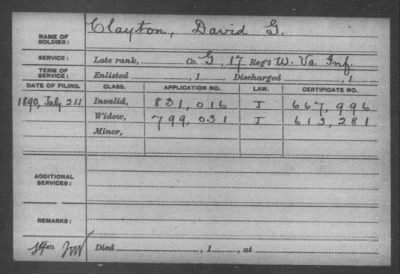 NAME OF SOLDIER: Clayton, David G.
SERVICE: Late rank, Co. G, 17 Reg't W. Va. Inf.
TERM OF SERVICE: Enlisted , 1 Discharged , 1
DATE OF FILING. CLASS. APPLICATION NO. LAW. CERTIFICATE NO.
1890, July 24 Invalid, 831,016 J 667,996
Widow, 799,031 J 613,281
Minor,
ADDITIONAL SERVICES:
REMARKS:
Died , 1 , at